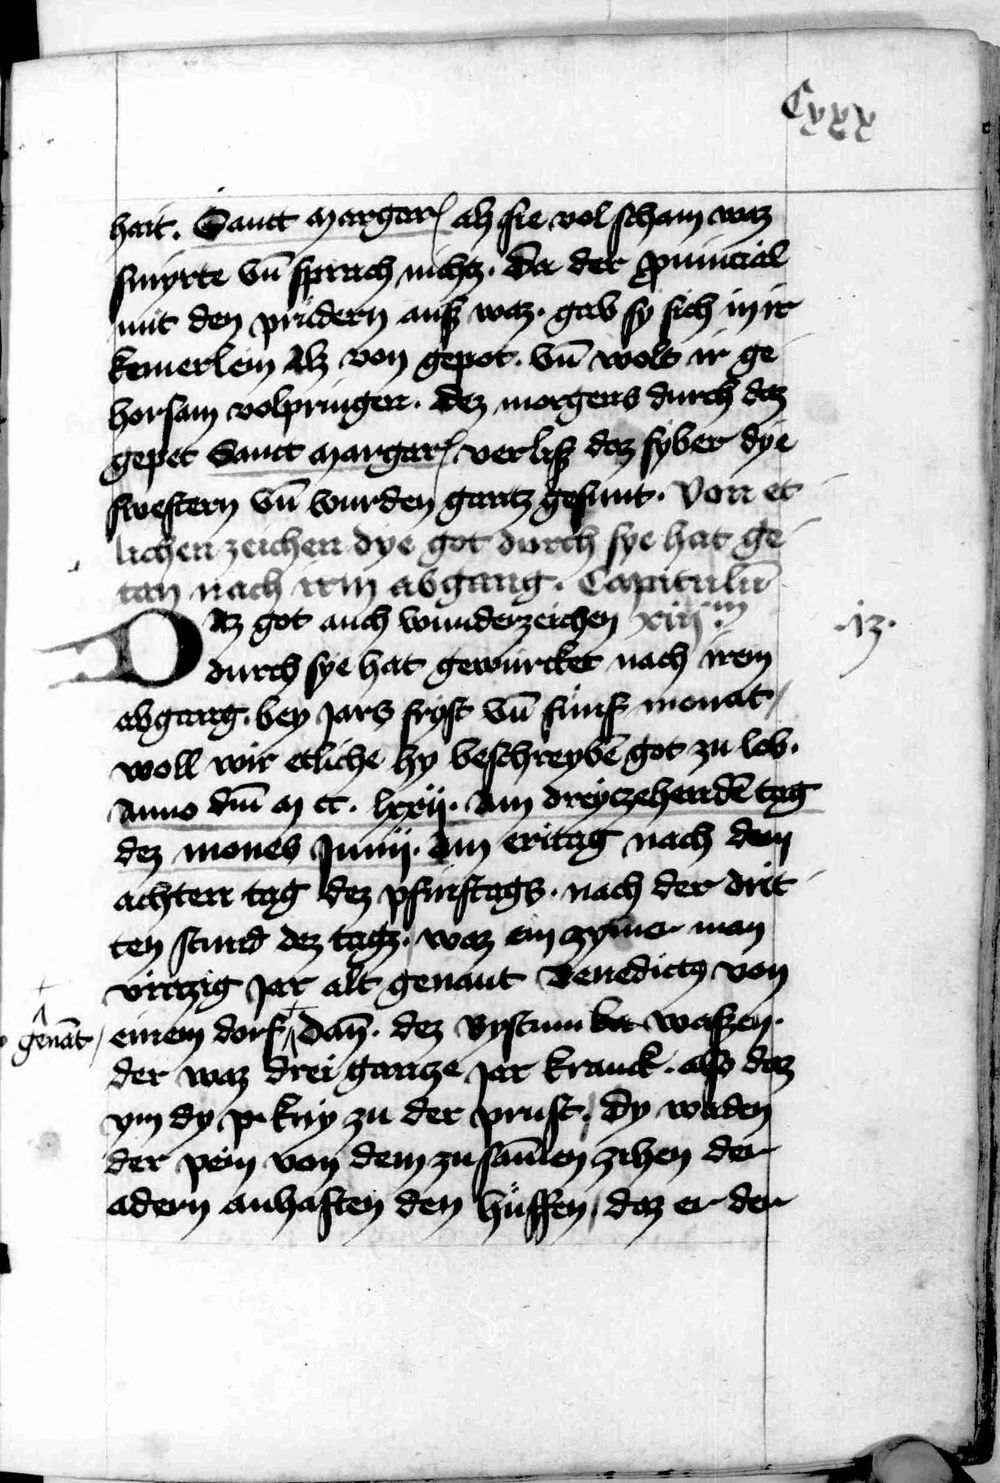 Cxxx
hait. Sanct margar[ als sie vol scham waz
smyrte vn̄ sprach nichtz. Da der prouincial
mit den prüdern auſz waz. gab sy sich in ir
kemerlein Alz von gepot. vn̄ wolt ir ge
horsam volpringen. Dez morgens durch daz
gepet Sanct margar[ verlisz daz fyber dye
swestern vn̄ wurden gantz gesunt. Von et
lichen zeichen dye got durch sye hat ge
tan nach irm abgang. Capitulū
DAz got auch wunderzeichen xiijm
.13.
durch sye hat gewürcket nach irem
abgang. bey Jars fryst vn̄ fünf monat/
woll wir etliche hy beschreybē got zu lob.
Anno dm̄ m cc. lxxij. Am dreyczehendē tag
dez mones Junij. Am eritag nach dem
achten tag dez pfinstags. nach der drit
ten stund dez tagz. waz ein zymer man
virtzig Jar alt genant Benedictus von
genāt/ einem dorf/ Dan̄. dez Bystum waszen.
der waz drei gantze Jar kranck. also daz
ym dy kniy zu der prust. Dy waden
der pein von dem zu sam̄len zihen der
adern anhaften den hüffen/ daz er der